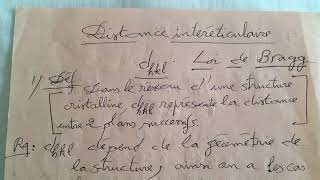 Distance interéticulaire
dhkl. Loi de Bragg
1/ Déf
Dans le réseau d'une structure
cristalline dhkl représente la distance
entre 2 plans successifs.
Rq: dhkl dépend de la géométrie de
la structure, ainsi on a les cas